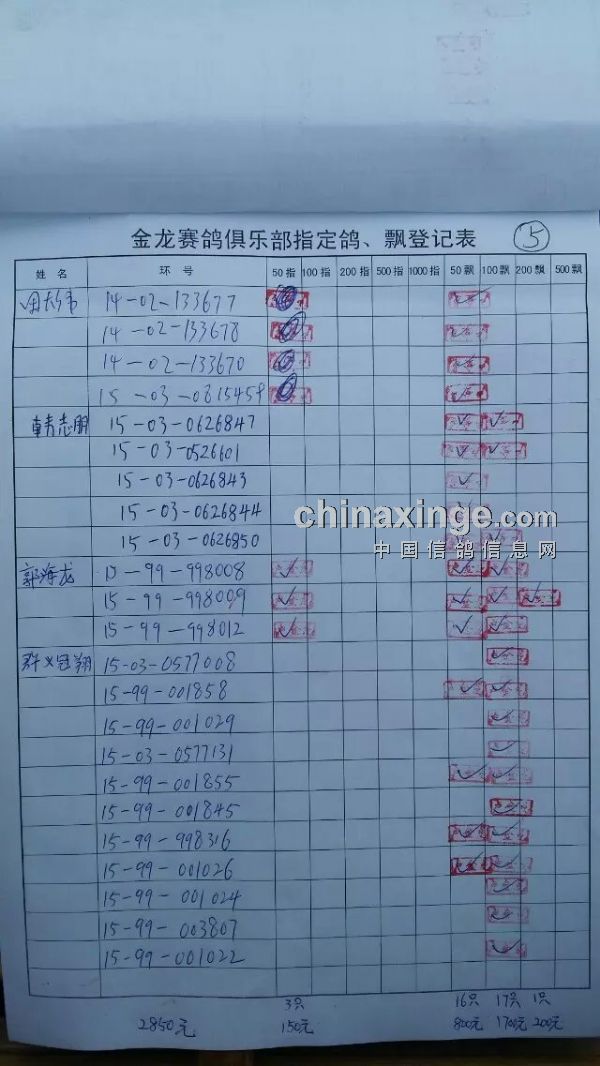 金龙赛鸽俱乐部指定鸽、飘登记表 ⑤
姓名 环号 50指 100指 200指 500指 1000指 50飘 100飘 200飘 500飘
14-02-133677
14-02-133678
14-02-133670
15-03-0615459
韩志朋 15-03-0626847
15-03-0526601
15-03-0626843
15-03-0626844
chinaxinge.com
15-03-0626850
中国信鸽信息网
郭海龙 15-99-998008
15-99-998009
15-99-998012
群义冠翔 15-03-0577008
15-99-001858
15-99-001029
15-03-0577131
15-99-001855
15-99-001845
15-99-998316
15-99-001026
15-99-001024
15-99-003807
15-99-001022
3只 16只 17只 1只
2850元 150元 800元 1700元 200元